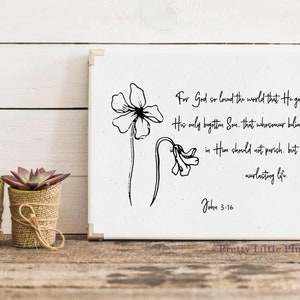 For God so loved the world that He ga
His only begotten Son, that whosoever belie
in Him should not perish, but
everlasting life.
John 3:16
Pretty Little Plu